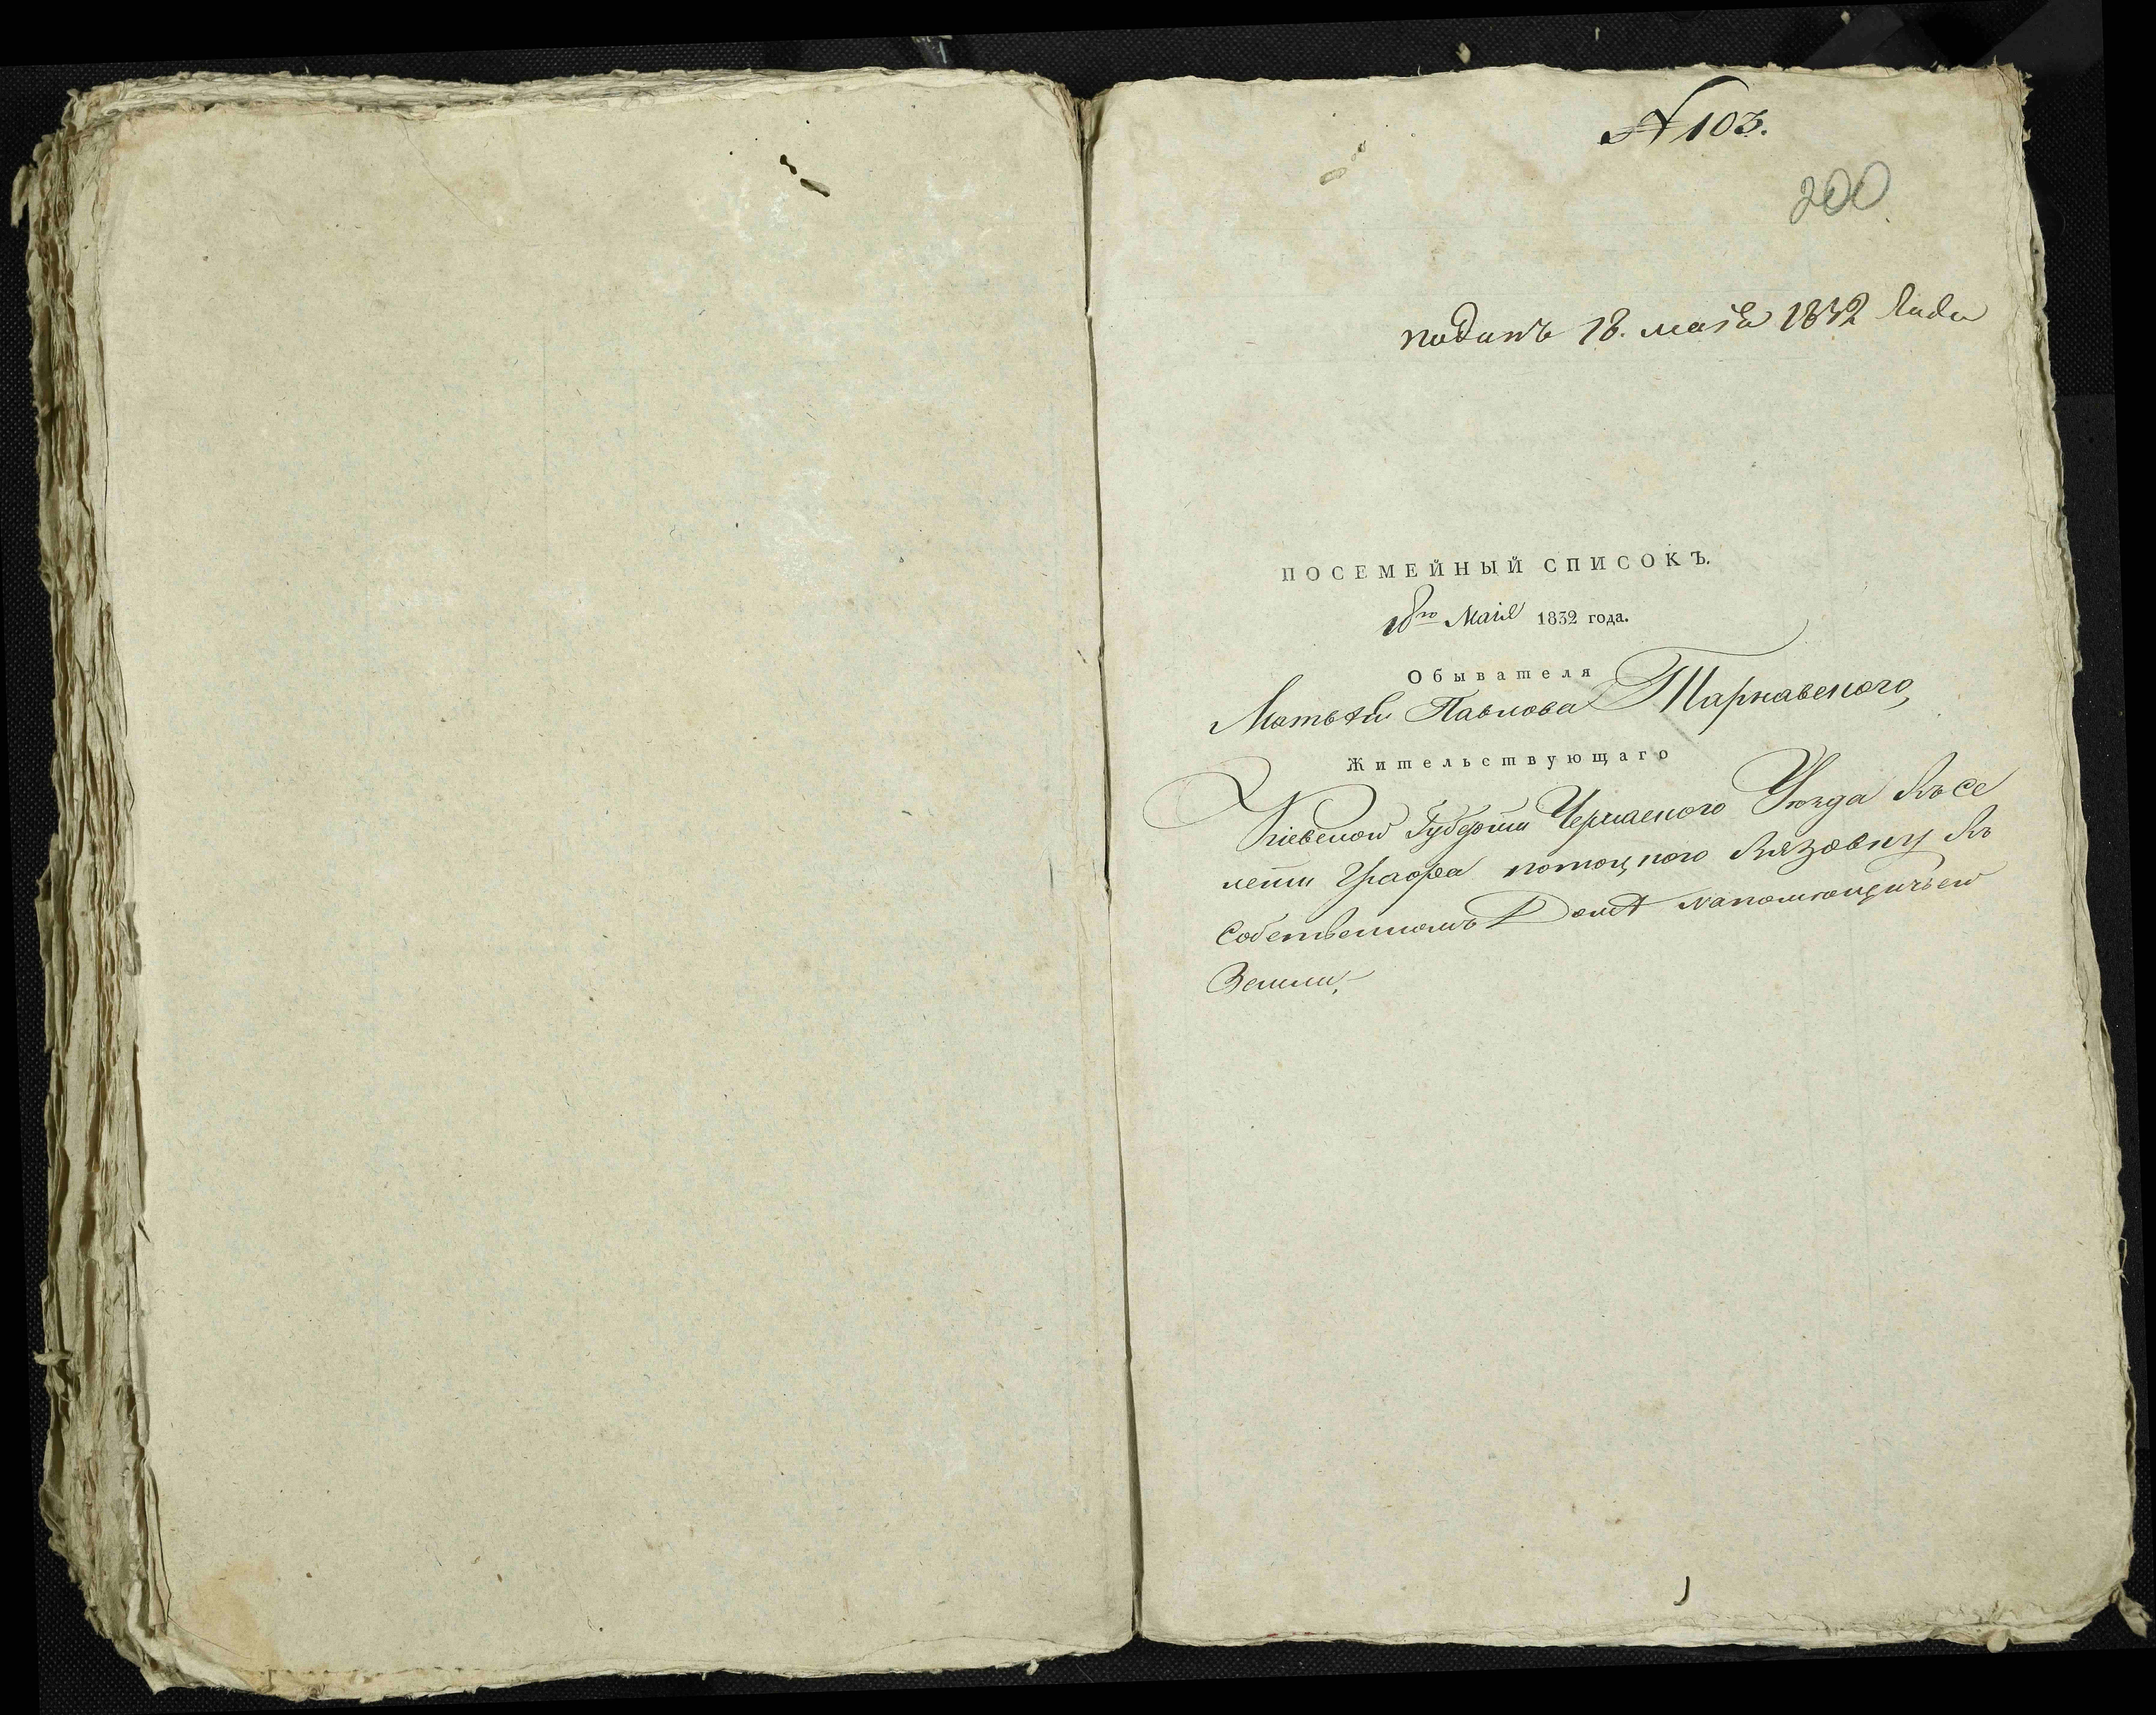 № 103.
200
поданъ 18. маія 1832 года
ПОСЕМЕЙНЫЙ СПИСОКЪ.
18го Маія 1832 года.
Обывателя
Матвѣя Павлова Тарнавского,
Жительствующаго
Кіевской Губерніи Черкаского Уѣзда Въ Се
леніи Графа потоцкого Вязовку Въ
Собственномъ Домѣ
Земли,